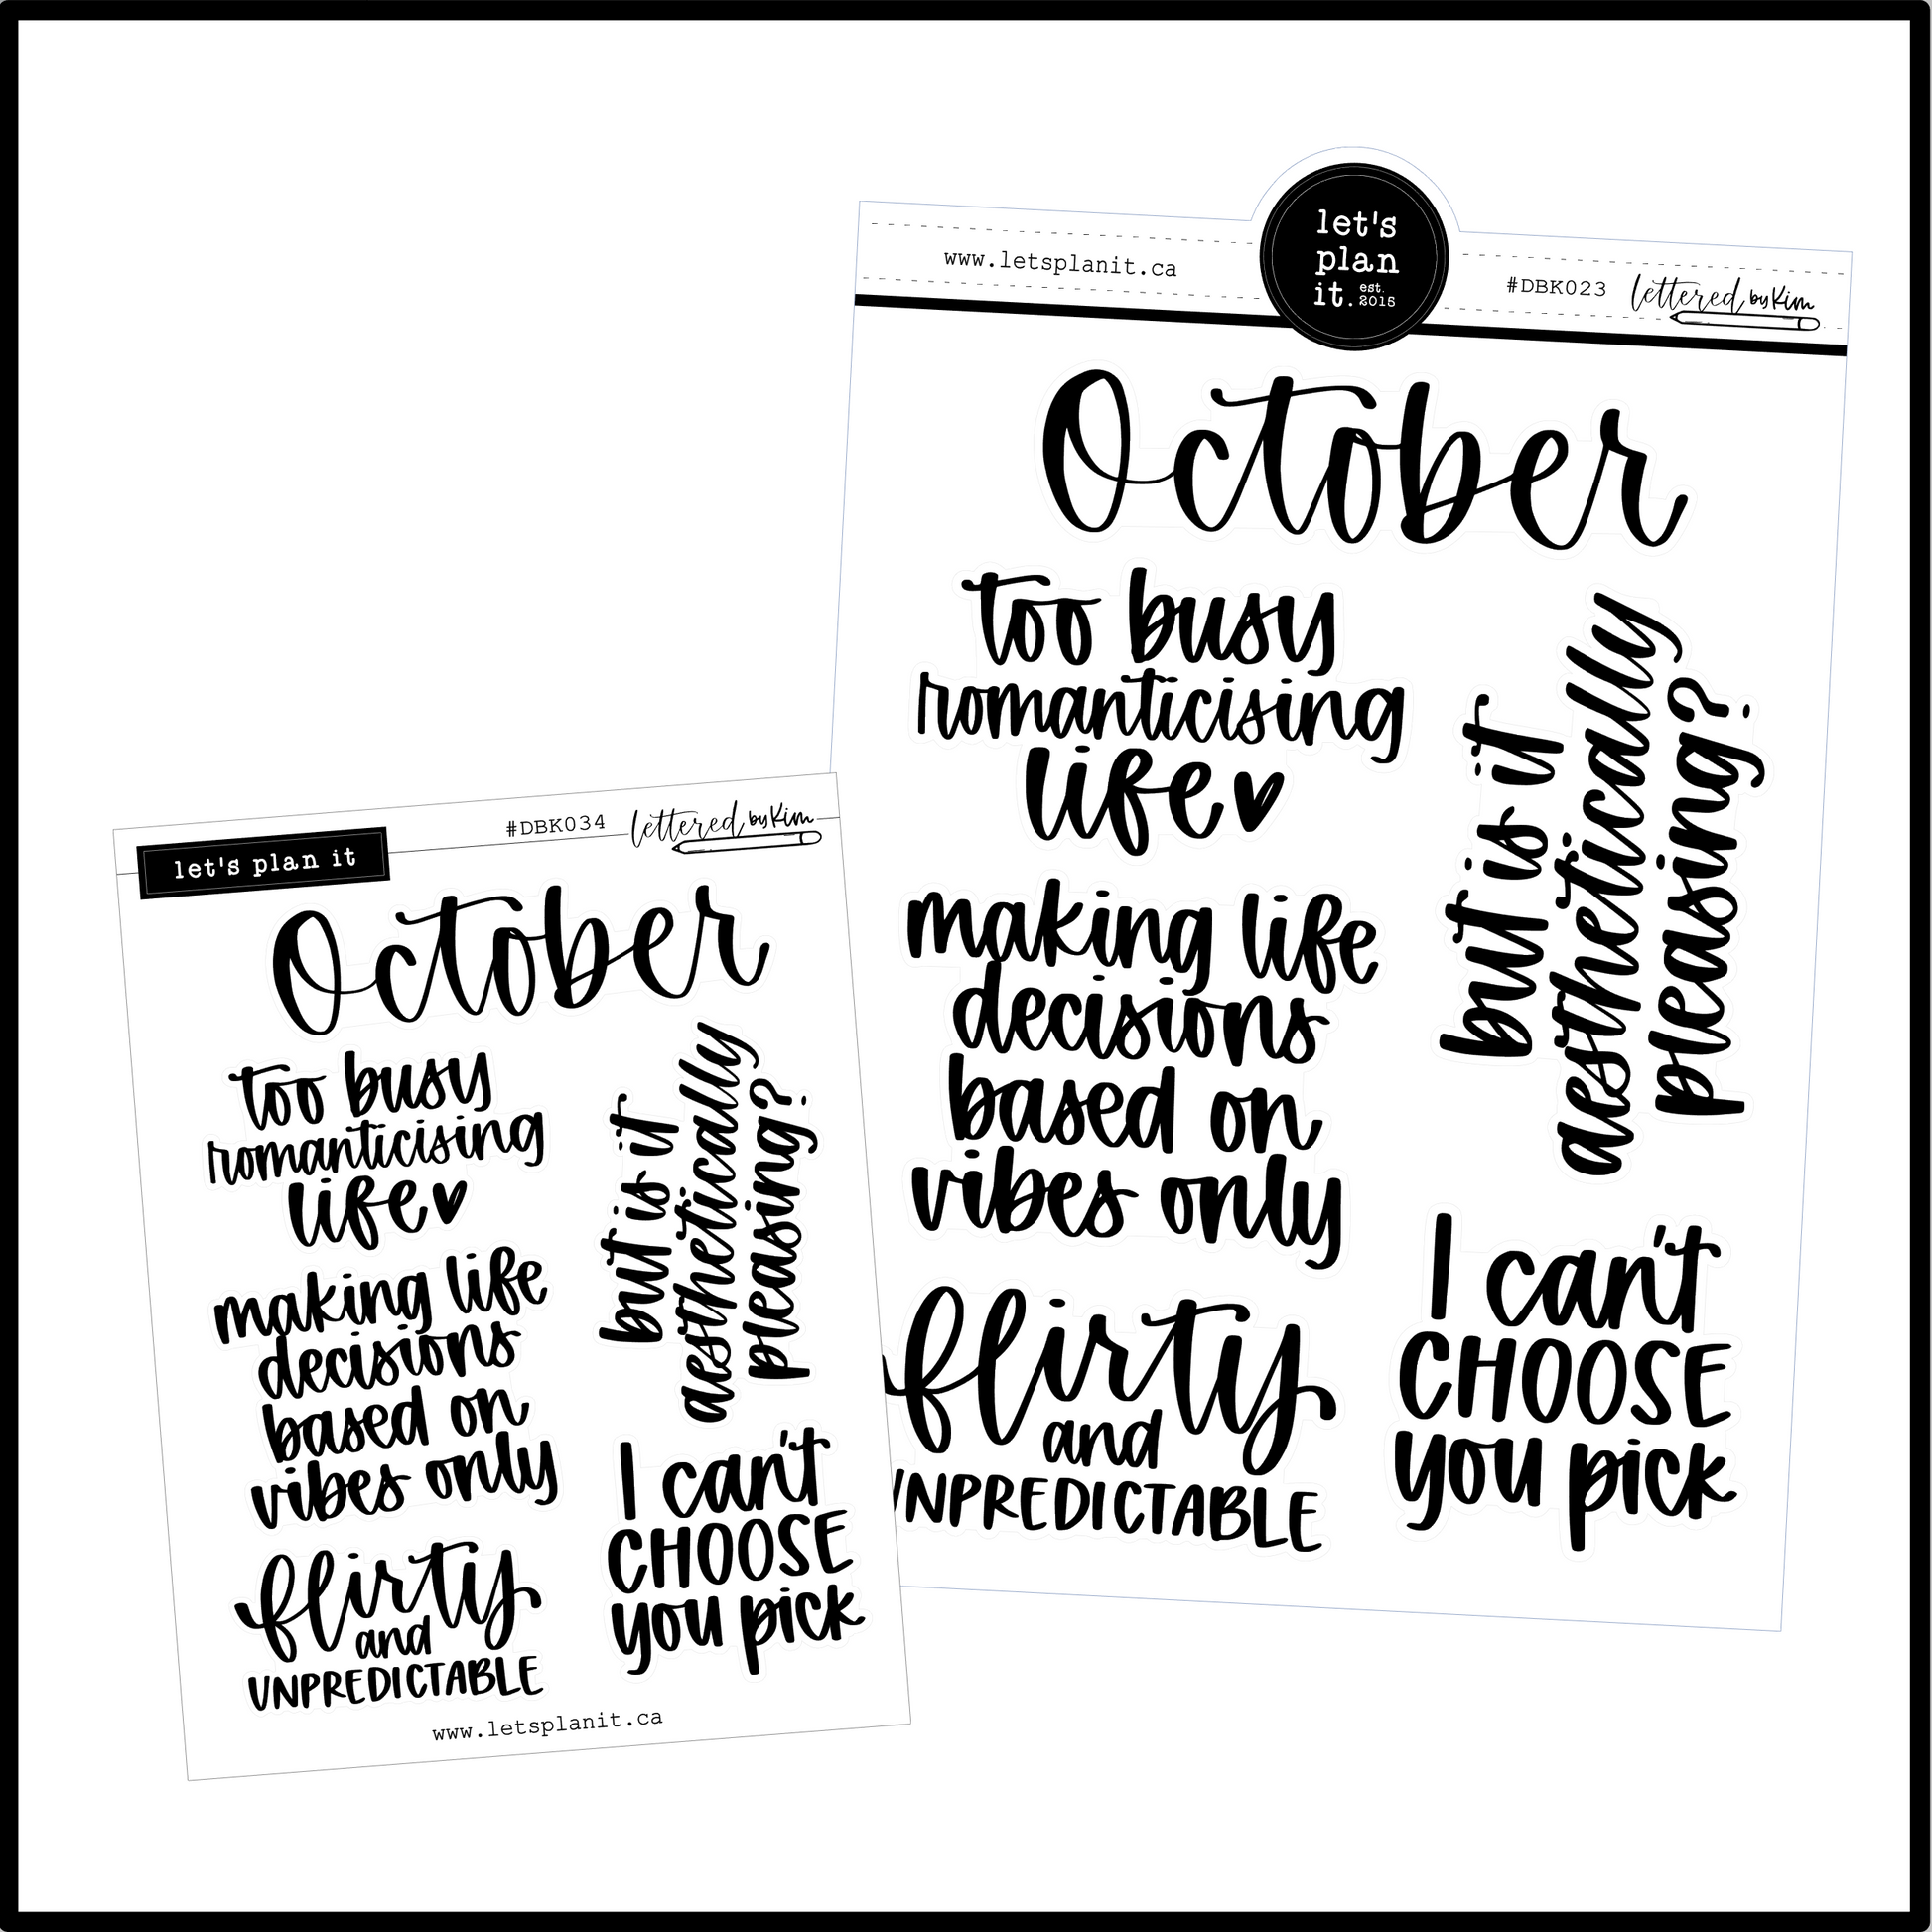 www.letsplanit.ca
let's
plan
it. est.
2015
#DBK023 lettered by Kim
October
too busy
romanticising
life
but is it
aesthetically
pleasing?
making life
decisions
based on
vibes only
flirty
and
UNPREDICTABLE
I can't
CHOOSE
you pick
let's plan it
#DBK034 lettered by Kim
October
too busy
romanticising
life
but is it
aesthetically
pleasing?
making life
decisions
based on
vibes only
flirty
and
UNPREDICTABLE
I can't
CHOOSE
you pick
www.letsplanit.ca